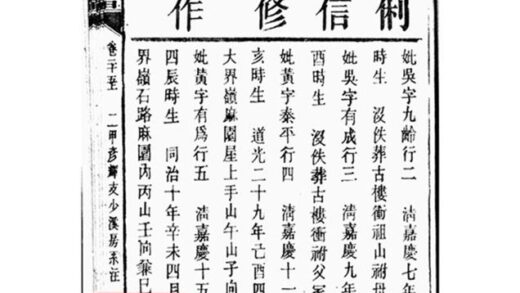 俐信修作
妣吳字九齡行二 清嘉慶七年
時生 沒佚葬古樓衝祖山祔母
妣吳字有成行三 清嘉慶九年
酉時生 沒佚葬古樓衝祔父
妣黃字泰平行四 清嘉慶十一
亥時生 道光二十九年己酉四
大界嶺麻園屋上手山午山子向
妣黃字有爲行五 清嘉慶十五
四辰時生 同治十年辛未四月
界嶺石路麻園內丙山壬向
卷二十五 二甲彥支少溪房系